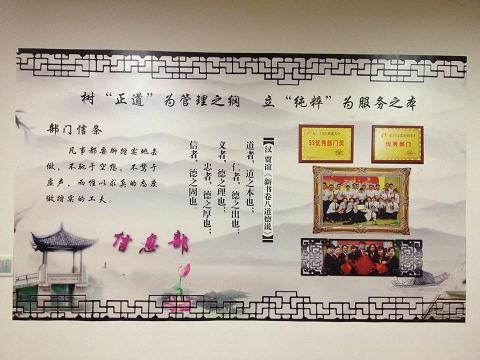 树“正道”为管理之纲 立“纯粹”为服务之本
部门信条
凡事都要脚踏实地去
做，不驰于空想，不骛于
虚声，而惟以求真的态度
做踏实的工夫。
信息部
【汉 贾谊《新书卷八道德说》】
道者，道之本也；
仁者，德之出也；
义者，德之理也；
忠者，德之厚也；
信者，德之固也。
5S优秀部门奖
优秀部门